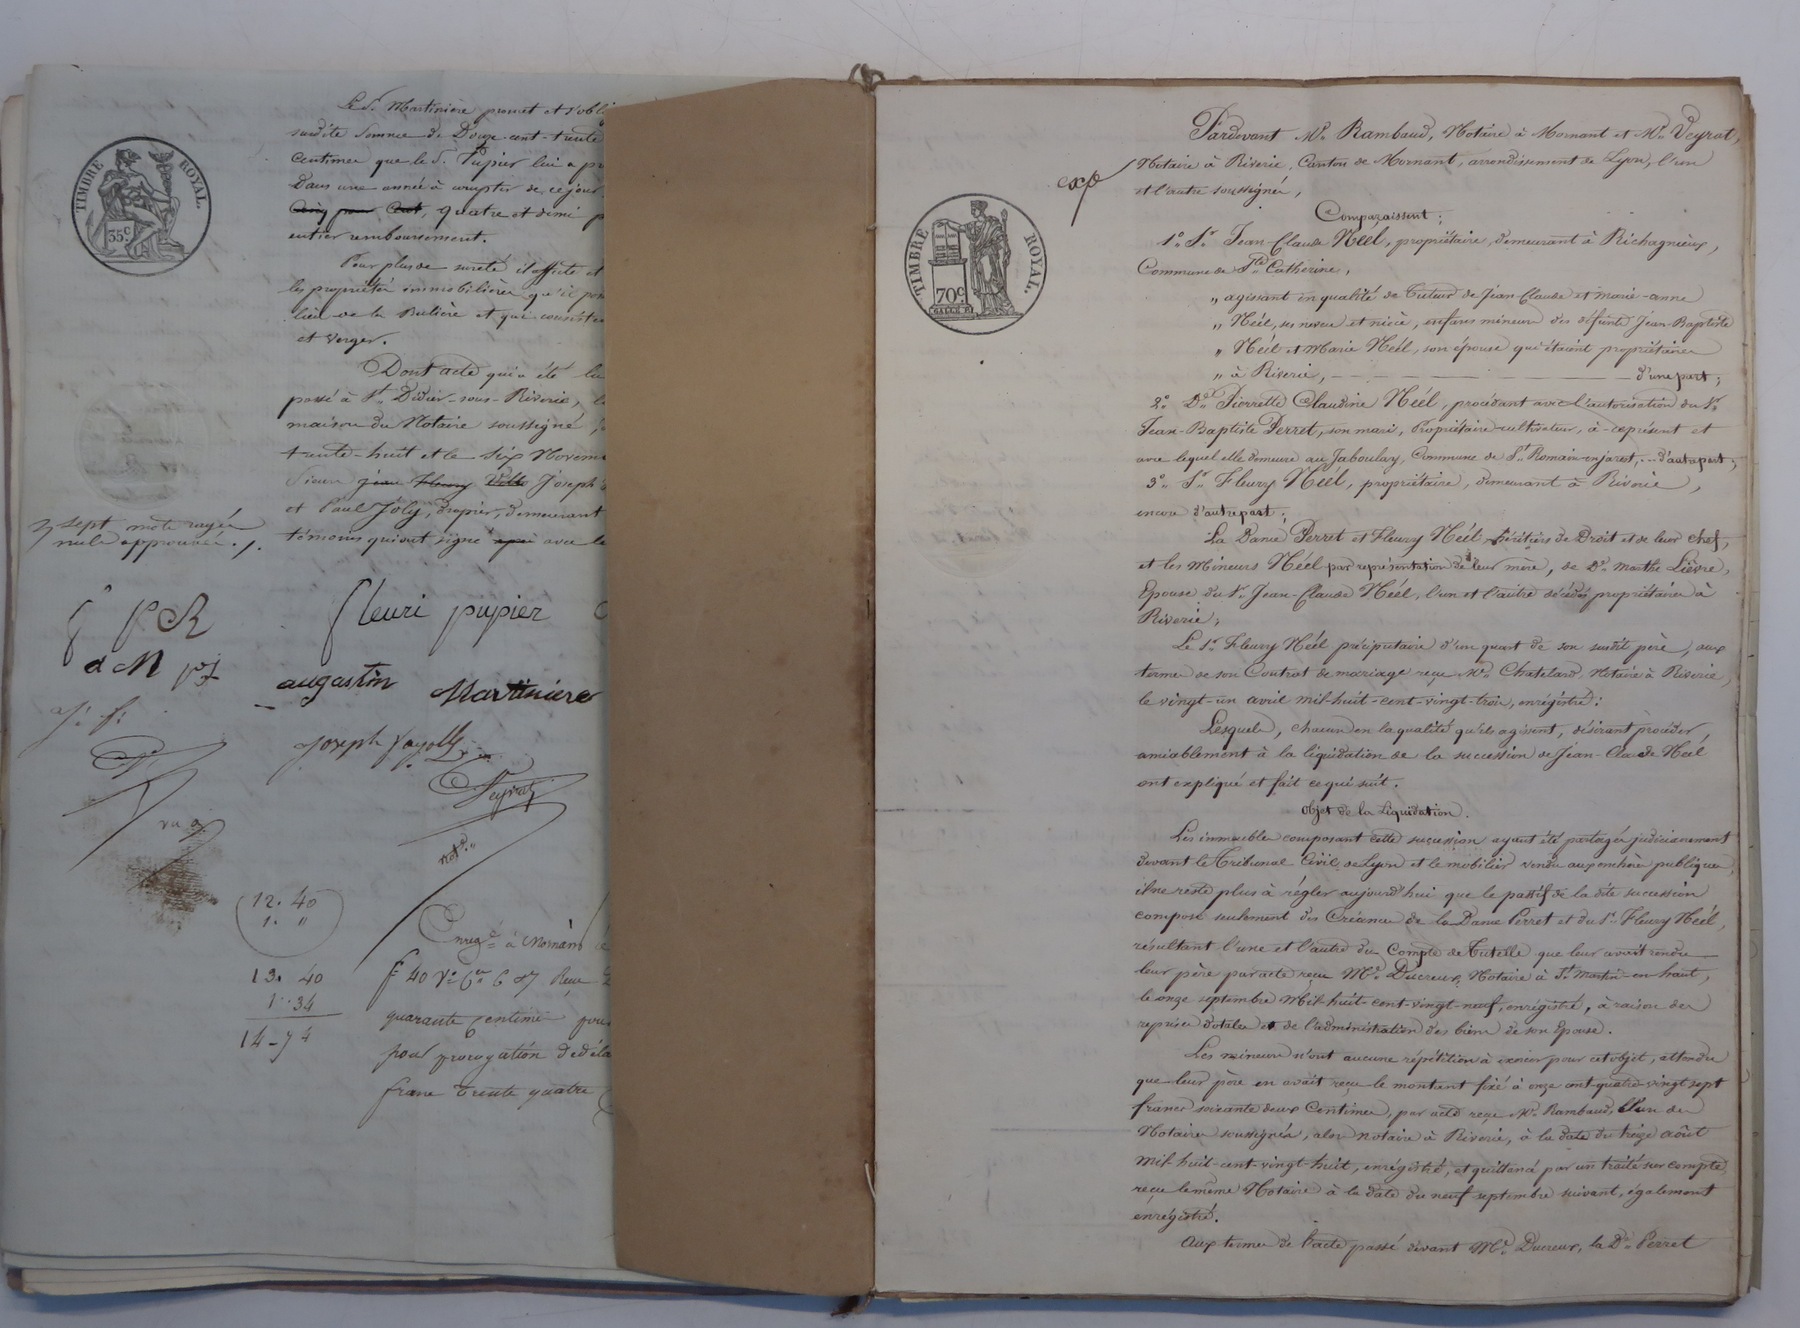 TIMBRE ROYAL.
35c
Le Sr. Martinière promet et s'obli
susdite somme de Douze-cent-trente
centimes que le S. Pupier lui a pr
dans une année à compter de ce jour
quatre et demi p
entier remboursement.
Pour plus de sureté il affecte et
les propriétés immobilières qu'il pos
lieu de la Bulière et qui consiste
et verger.
Dont acte qui a été lu
passé à St. Didier-sous-Riverie, l
maison du Notaire soussigné,
trente-huit et le six Novem
Sieur jean Fleury Joseph
et Paul Joly, drapier, demeurant
témoins qui ont signé avec le
sept mots rayés
nuls approuvés ./.
f P R
a M
fleuri pupier
augustin Martiniere
joseph fayolle
Veyrat
not.
12. 40
1. "
13. 40
1. 34
14 - 74
Enregé à Mornant le
f° 40 V° Cn 6 et 7 Reçu
quarante centimes pou
pour prorogation de déla
franc trente quatre
Pardevant Me. Rambaud, Notaire à Mornant et Me. Veyrat,
Notaire à Riverie, Canton de Mornant, arrondissement de Lyon, l'un
et l'autre soussignés,
exp
TIMBRE ROYAL.
70c.
Comparaissent;
1° Sr. Jean-Claude Néel, propriétaire, demeurant à Richagnieux,
Commune de Ste. Catherine,
" agissant en qualité de tuteur de Jean-Claude et marie-anne
" Néel, ses neveu et nièce, enfans mineurs des défunts Jean-Baptiste
" Néel et Marie Néel, son épouse qui étaient propriétaires
" à Riverie, d'une part;
2° De. Pierrette Claudine Néel, procédant avec l'autorisation du Sr.
Jean-Baptiste Perret, son mari, Propriétaire-cultivateur, à ce présent et
avec lequel elle demeure au Jaboulay, Commune de St. Romain-en-jarest, d'autre part;
3° Sr. Fleury Néel, propriétaire, demeurant à Riverie,
encore d'autre part;
La Dame Perret et Fleury Néel, héritiers de Droit et de leur chef,
et les Mineurs Néel par représentation de leur mère, de De. Marthe Lièvre,
Epouse du Sr. Jean-Claude Néel, l'un et l'autre décédés propriétaires à
Riverie;
Le Sr. Fleury Néel préciputaire d'un quart de son susdit père, aux
termes de son Contrat de mariage reçu Me. Chatelard Notaire à Riverie,
le vingt-un avril mil-huit-cent-vingt-trois, enrégistré:
Lesquels, chacun en la qualité qu'ils agissent, désirant procéder
amiablement à la liquidation de la succession de Jean-Claude Néel
ont expliqué et fait ce qui suit.
Objet de la Liquidation.
Les immeubles composant cette succession ayant été partagés judiciairement
devant le Tribunal Civil de Lyon et le mobilier vendu aux enchères publiques,
il ne reste plus à régler aujourd'hui que le passif de la dite succession
composé seulement des Créances de la Dame Perret et du Sr. Fleury Néel,
résultant l'une et l'autre du Compte de tutelle que leur avait rendu
leur père par acte reçu Me. Ducreux, Notaire à St. Martin-en-haut,
le onze septembre Mil-huit-cent-vingt-neuf, enrégistré, à raison des
reprises dotales et de l'administration des biens de son Epouse.
Les mineurs n'ont aucune répétition à exercer pour cet objet, attendu
que leur père en avait reçu le montant fixé à onze cent quatre-vingt sept
francs soixante deux Centimes, par acte reçu Me. Rambaud, l'un des
Notaires soussignés, alors notaire à Riverie, à la date du treize août
mil-huit-cent-vingt-huit, enrégistré, et quittancé par un traité sur compte,
reçu le même Notaire à la date du neuf septembre suivant, également
enrégistré.
Aux termes de l'acte passé devant Me. Ducreux, la De. Perret